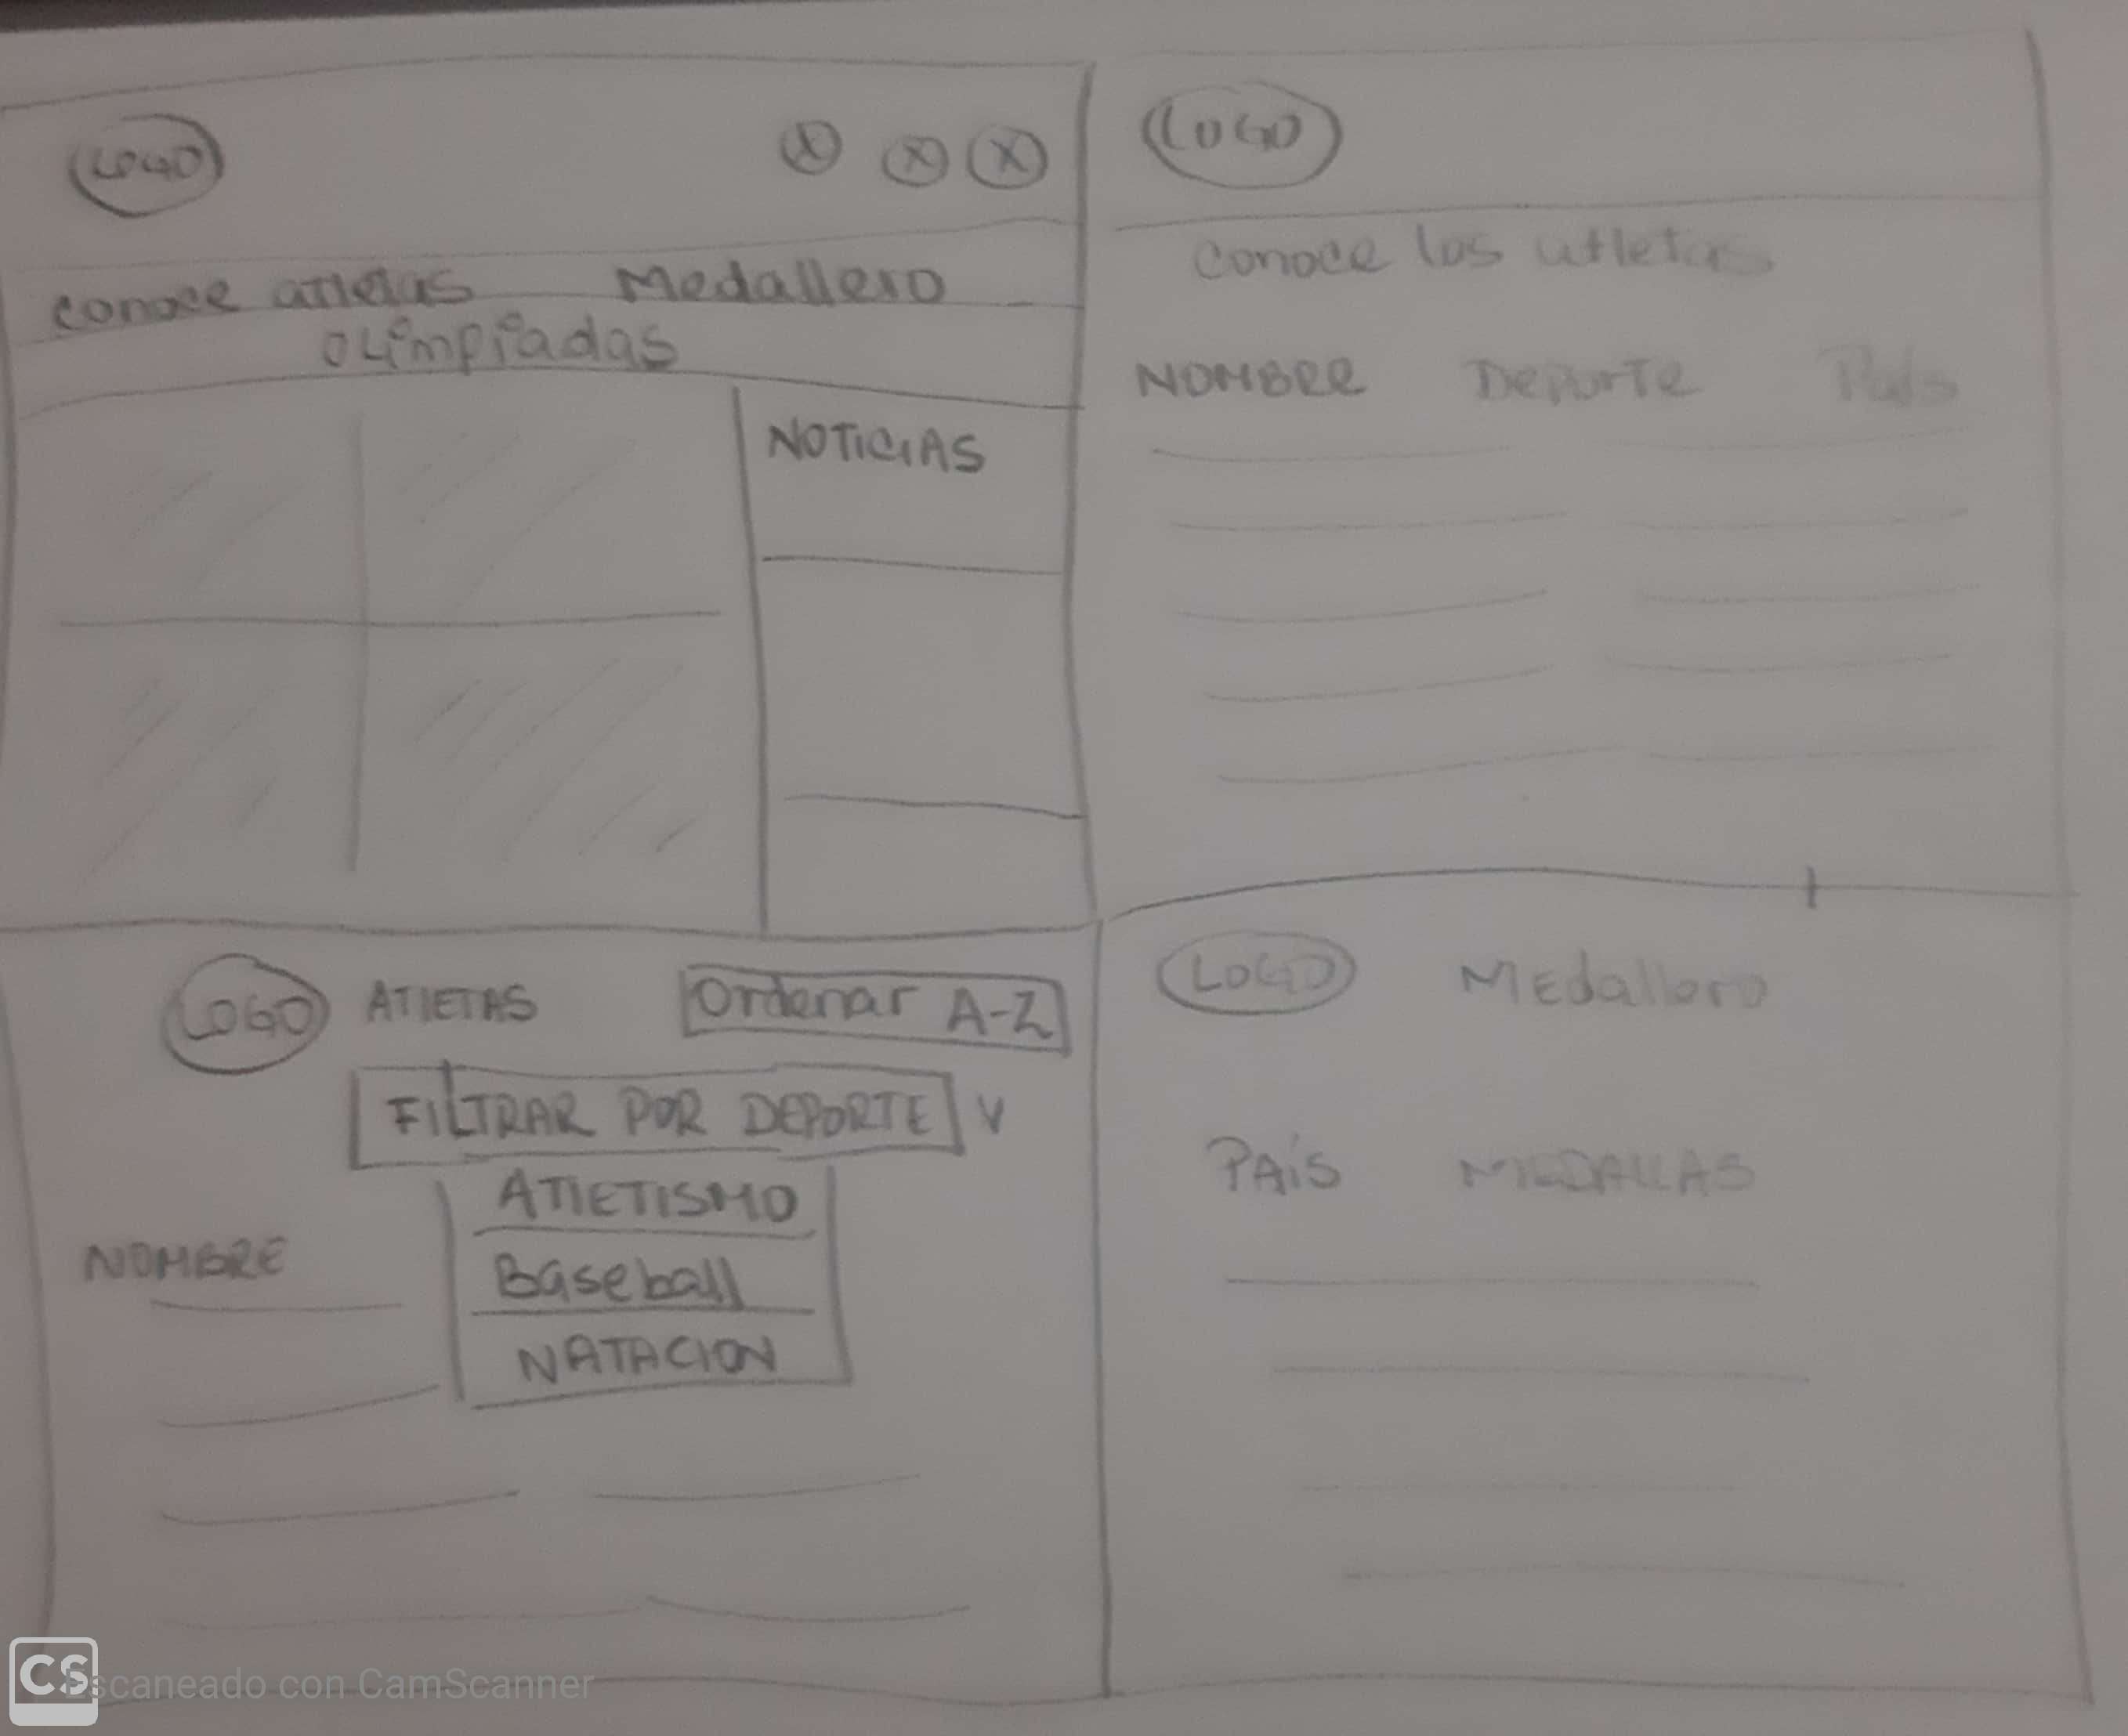 LOGO
X X X
conoce atletas Medallero
olimpiadas
NOTICIAS
LOGO
conoce los atletas
NOMBRE Deporte País
LOGO ATLETAS Ordenar A-Z
FILTRAR POR DEPORTE V
ATLETISMO
Baseball
NATACION
NOMBRE
LOGO Medallero
PAÍS MEDALLAS
CS Escaneado con CamScanner